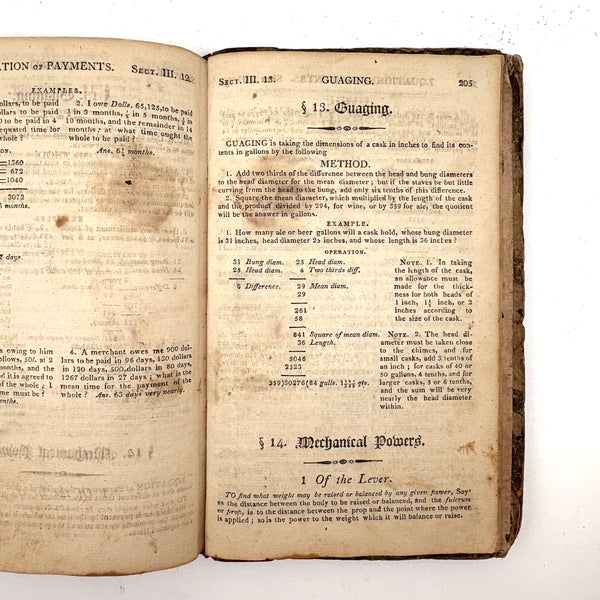 ATION OF PAYMENTS. SECT. III. 12.
EXAMPLES.
ollars, to be paid
ollars to be paid
d to be paid in 4
equated time for
whole to be paid ?
ON.
=1360
= 672
=1040
3072
months.
7 days.
2. I owe Dolls. 65,125, to be paid
in 3 months, in 5 months,
in 10 months, and the remainder in 14
months : at what time ought the
whole to be paid ?
Ans. 6¼ months.
s owing to him
ollows, 50l. at 2
months, and the
d it is agreed to
of the whole ; I
me must be ?
months.
4. A merchant owes me 900 dol-
lars to be paid in 96 days, 130 dollars
in 120 days, 500 dollars in 80 days,
1267 dollars in 27 days ; what is the
mean time for the payment of the
whole ? Ans. 63 days very nearly.
SECT. III. 13. GUAGING. 205
§ 13. Guaging.
GUAGING is taking the dimensions of a cask in inches to find its con-
tents in gallons by the following
METHOD.
1. Add two thirds of the difference between the head and bung diameters
to the head diameter for the mean diameter ; but if the staves be but little
curving from the head to the bung, add only six tenths of this difference.
2. Square the mean diameter, which multiplied by the length of the cask
and the product divided by 294, for wine, or by 359 for ale, the quotient
will be the answer in gallons.
EXAMPLE.
1. How many ale or beer gallons will a cask hold, whose bung diameter
is 31 inches, head diameter 25 inches, and whose length is 36 inches ?
OPERATION.
31 Bung diam. 25 Head diam.
25 Head diam. 4 Two thirds diff.
6 Difference. 29 Mean diam.
29
261
58
841 Square of mean diam.
36 Length.
5046
2523
359)30276(84 galls. qts.
NOTE. 1. In taking
the length of the cask,
an allowance must be
made for the thick-
ness for both heads of
1 inch, 1½ inch, or 2
inches according to
the size of the cask.
NOTE. 2. The head di-
ameter must be taken close
to the chimes, and for small
casks, add 3 tenths of
an inch ; for casks of 40 or
50 gallons, 4 tenths, and for
larger casks, 5 or 6 tenths,
and the sum will be very
nearly the head diameter
within.
§ 14. Mechanical Powers.
1 Of the Lever.
TO find what weight may be raised or balanced by any given power, Say
as the distance between the body to be raised or balanced, and the fulcrum
or prop, is to the distance between the prop and the point where the power
is applied ; so is the power to the weight which it will balance or raise.